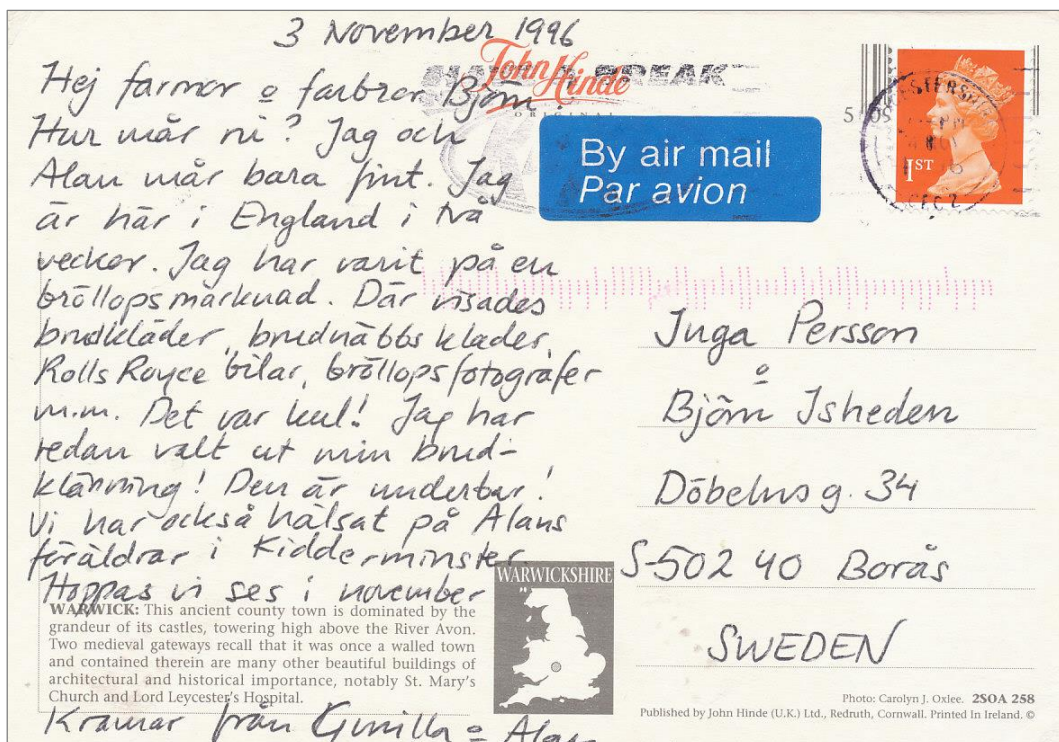 3 November 1996
Hej farmor o farbror Björn!
Hur mår ni? Jag och
Alan mår bara fint. Jag
är här i England i två
veckor. Jag har varit på en
bröllopsmarknad. Där visades
brudkläder, brudnäbbskläder,
Rolls Royce bilar, bröllopsfotografer
m.m. Det var kul! Jag har
redan valt ut min brud-
klänning! Den är underbar!
Vi har också hälsat på Alans
föräldrar i Kidderminster.
Hoppas vi ses i november
WARWICK: This ancient county town is dominated by the
grandeur of its castles, towering high above the River Avon.
Two medieval gateways recall that it was once a walled town
and contained therein are many other beautiful buildings of
architectural and historical importance, notably St. Mary's
Church and Lord Leycester's Hospital.
Kramar från Gunilla o Alan
John Hinde
ORIGINAL
BREAK
By air mail
Par avion
1ST
WARWICKSHIRE
Inga Persson
o
Björn Isheden
Döbelnsg. 34
S-502 40 Borås
SWEDEN
Photo: Carolyn J. Oxlee. 2SOA 258
Published by John Hinde (U.K.) Ltd., Redruth, Cornwall. Printed In Ireland. ©